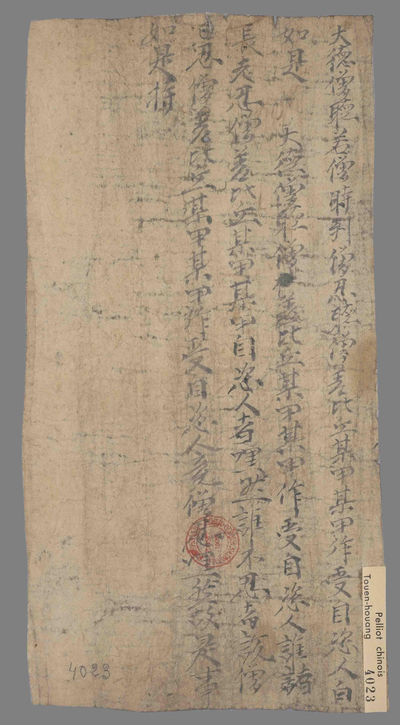 大德僧聽若僧時到僧忍聽僧差比丘某甲某甲作受自恣人白
如是 大德僧聽僧差比丘某甲某甲作受自恣人誰諸
長老忍僧差比丘某甲某甲自恣人者嘿然誰不忍者說僧
已忍僧差比丘某甲某甲作受自恣人竟僧忍嘿然故是事
如是持
4023
Pelliot chinois
Touen-houang
4023